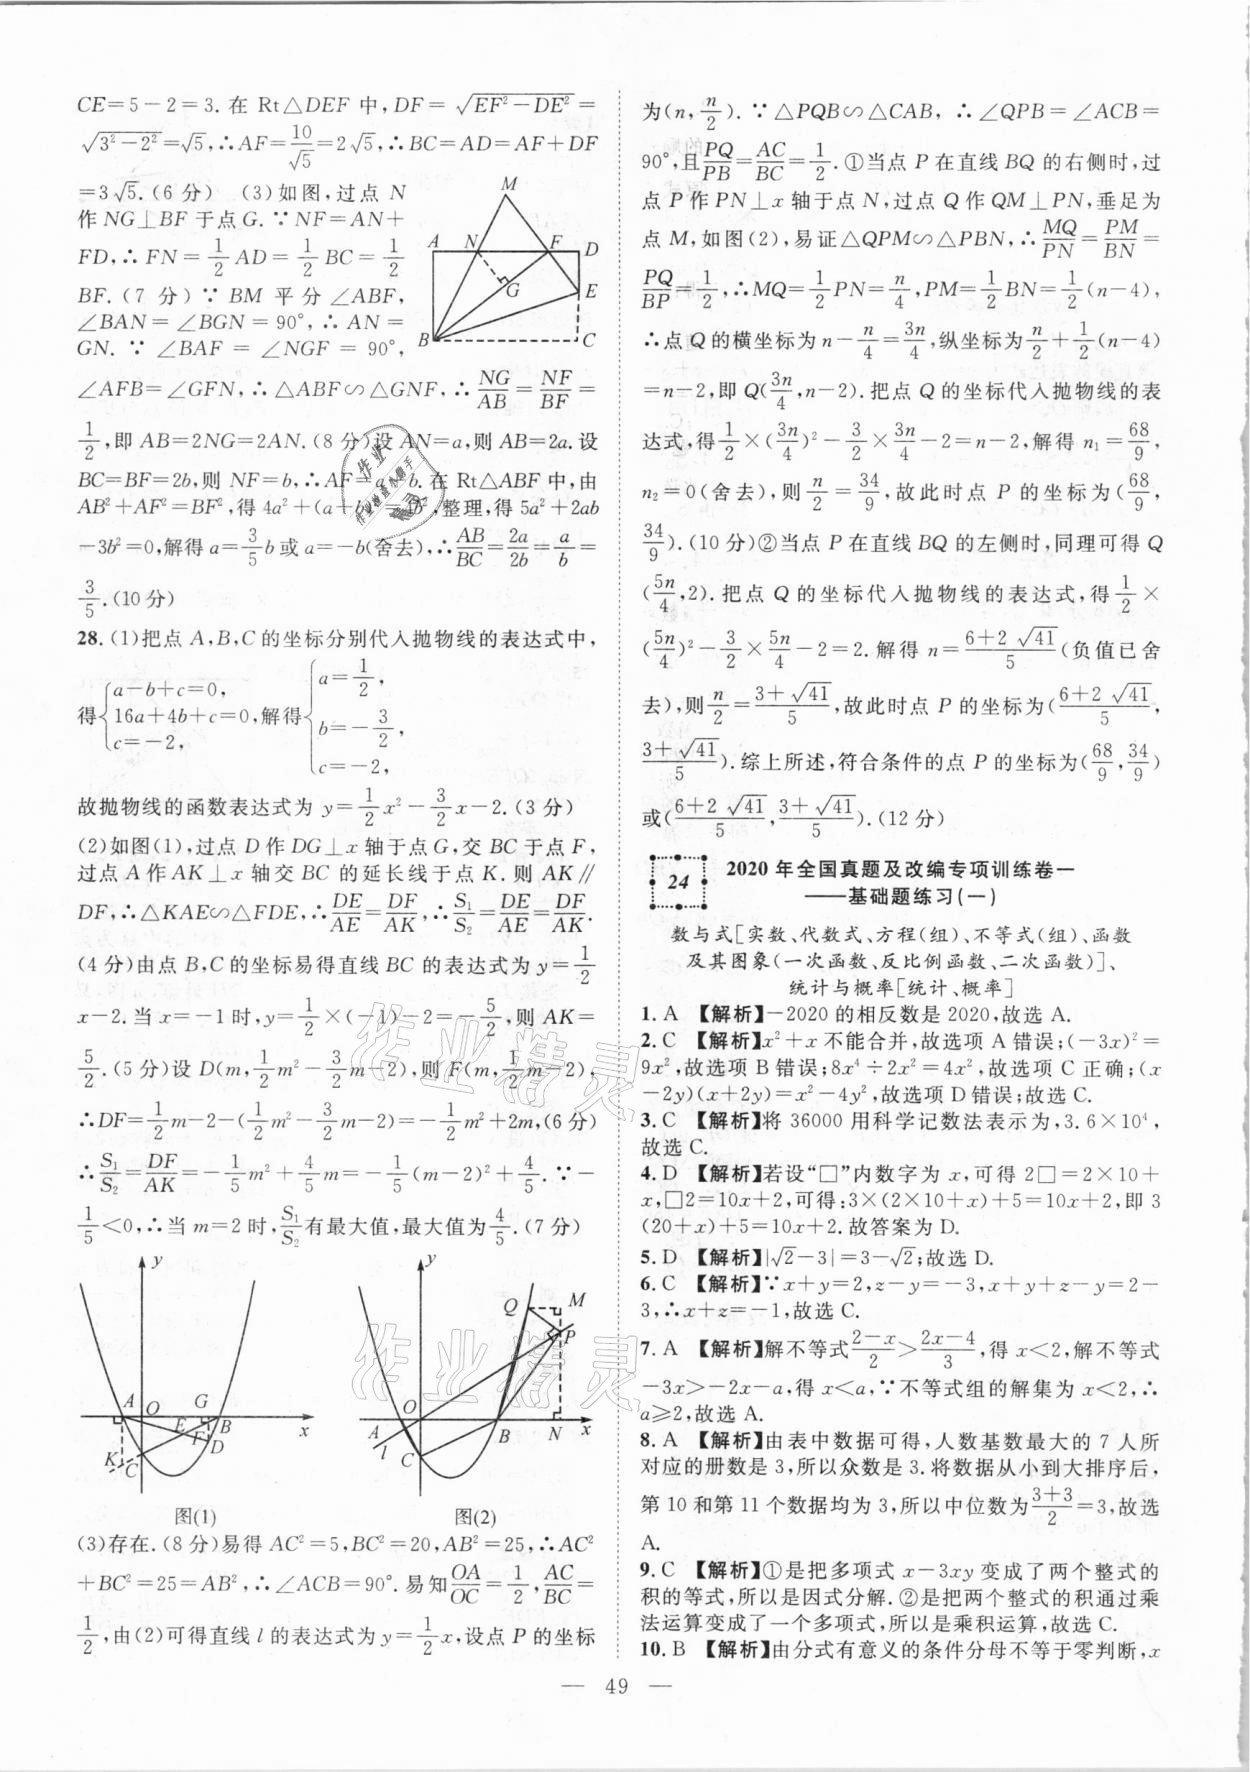 CE=5-2=3.在 Rt△DEF 中,DF=√(EF²-DE²)=
√(3²-2²)=√5,∴AF=10/√5=2√5,∴BC=AD=AF+DF
=3√5.(6分) (3)如图,过点 N
作 NG⊥BF 于点 G.∵NF=AN+
FD,∴FN=1/2 AD=1/2 BC=1/2
BF.(7分)∵BM 平分∠ABF,
∠BAN=∠BGN=90°,∴AN=
GN.∵∠BAF=∠NGF=90°,
∠AFB=∠GFN,∴△ABF∽△GNF,∴NG/AB=NF/BF=
1/2,即 AB=2NG=2AN.(8分)设 AN=a,则 AB=2a.设
BC=BF=2b,则 NF=b,∴AF= b.在 Rt△ABF 中,由
AB²+AF²=BF²,得 4a²+(a+b =4b²,整理,得 5a²+2ab
-3b²=0,解得 a=3/5 b 或 a=-b(舍去),∴AB/BC=2a/2b=a/b=
3/5.(10分)
M
A N F D
G
E
B C
28.(1)把点 A,B,C 的坐标分别代入抛物线的表达式中,
得{a-b+c=0, 16a+4b+c=0, c=-2, 解得{a=1/2, b=-3/2, c=-2,
故抛物线的函数表达式为 y=1/2 x²-3/2 x-2.(3分)
(2)如图(1),过点 D 作 DG⊥x 轴于点 G,交 BC 于点 F,
过点 A 作 AK⊥x 轴交 BC 的延长线于点 K.则 AK∥
DF,∴△KAE∽△FDE,∴DE/AE=DF/AK,∴S₁/S₂=DE/AE=DF/AK.
(4分)由点 B,C 的坐标易得直线 BC 的表达式为 y=1/2
x-2.当 x=-1 时,y=1/2×(-1)-2=-5/2,则 AK=
5/2.(5分)设 D(m,1/2 m²-3/2 m-2),则 F(m,1/2 m-2),
∴DF=1/2 m-2-(1/2 m²-3/2 m-2)=-1/2 m²+2m,(6分)
∴S₁/S₂=DF/AK=-1/5 m²+4/5 m=-1/5(m-2)²+4/5.∵-
1/5<0,∴当 m=2 时,S₁/S₂有最大值,最大值为4/5.(7分)
y
A O G B x
E F D
K C
图(1)
y
Q M
P
A O B N x
l C
图(2)
(3)存在.(8分)易得 AC²=5,BC²=20,AB²=25,∴AC²
+BC²=25=AB²,∴∠ACB=90°.易知OA/OC=1/2,AC/BC=
1/2,由(2)可得直线 l 的表达式为 y=1/2 x,设点 P 的坐标
为(n,n/2).∵△PQB∽△CAB,∴∠QPB=∠ACB=
90°,且PQ/PB=AC/BC=1/2.①当点 P 在直线 BQ 的右侧时,过
点 P 作 PN⊥x 轴于点 N,过点 Q 作 QM⊥PN,垂足为
点 M,如图(2),易证△QPM∽△PBN,∴MQ/PN=PM/BN=
PQ/BP=1/2,∴MQ=1/2 PN=n/4,PM=1/2 BN=1/2(n-4),
∴点 Q 的横坐标为 n-n/4=3n/4,纵坐标为n/2+1/2(n-4)
=n-2,即 Q(3n/4,n-2).把点 Q 的坐标代入抛物线的表
达式,得1/2×(3n/4)²-3/2×3n/4-2=n-2,解得 n₁=68/9,
n₂=0(舍去),则n/2=34/9,故此时点 P 的坐标为(68/9,
34/9).(10分)②当点 P 在直线 BQ 的左侧时,同理可得 Q
(5n/4,2).把点 Q 的坐标代入抛物线的表达式,得1/2×
(5n/4)²-3/2×5n/4-2=2.解得 n=(6+2√41)/5(负值已舍
去),则n/2=(3+√41)/5,故此时点 P 的坐标为((6+2√41)/5,
(3+√41)/5).综上所述,符合条件的点 P 的坐标为(68/9,34/9)
或((6+2√41)/5,(3+√41)/5).(12分)
24
2020 年全国真题及改编专项训练卷一
——基础题练习(一)
数与式[实数、代数式、方程(组)、不等式(组)、函数
及其图象(一次函数、反比例函数、二次函数)]、
统计与概率[统计、概率]
1. A 【解析】-2020 的相反数是 2020,故选 A.
2. C 【解析】x²+x 不能合并,故选项 A 错误;(-3x)²=
9x²,故选项 B 错误;8x⁴÷2x²=4x²,故选项 C 正确;(x
-2y)(x+2y)=x²-4y²,故选项 D 错误;故选 C.
3. C 【解析】将 36000 用科学记数法表示为,3.6×10⁴,
故选 C.
4. D 【解析】若设“□”内数字为 x,可得 2□=2×10+
x,□2=10x+2,可得:3×(2×10+x)+5=10x+2,即 3
(20+x)+5=10x+2.故答案为 D.
5. D 【解析】|√2-3|=3-√2;故选 D.
6. C 【解析】∵x+y=2,z-y=-3,x+y+z-y=2-
3,∴x+z=-1,故选 C.
7. A 【解析】解不等式(2-x)/2>(2x-4)/3,得 x<2,解不等式
-3x>-2x-a,得 x<a,∵不等式组的解集为 x<2,∴
a≥2,故选 A.
8. A 【解析】由表中数据可得,人数基数最大的 7 人所
对应的册数是 3,所以众数是 3.将数据从小到大排序后,
第 10 和第 11 个数据均为 3,所以中位数为(3+3)/2=3,故选
A.
9. C 【解析】①是把多项式 x-3xy 变成了两个整式的
积的等式,所以是因式分解.②是把两个整式的积通过乘
法运算变成了一个多项式,所以是乘积运算,故选 C.
10. B 【解析】由分式有意义的条件分母不等于零判断,x
— 49 —
作业精灵
作业精灵
作业
作业检查小助手